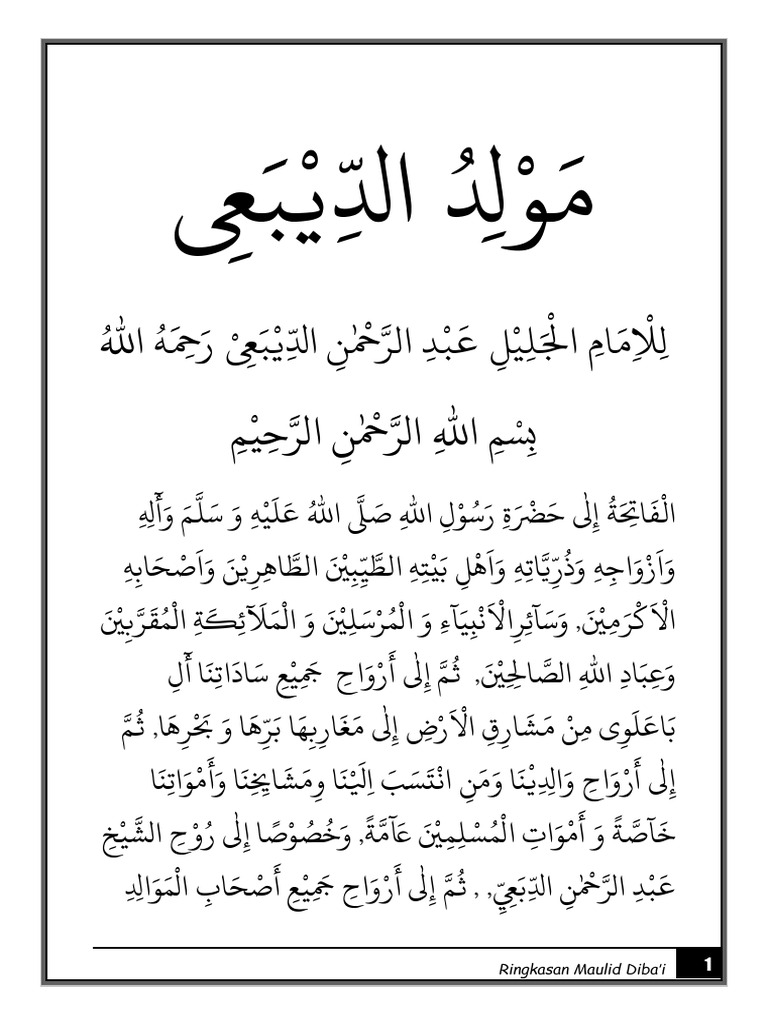 مَوْلِدُ الدِّيْبَعِى
لِلْاِمَامِ الْجَلِيْلِ عَبْدِ الرَّحْمٰنِ الدِّيْبَعِىْ رَحِمَهُ اللهُ
بِسْمِ اللهِ الرَّحْمٰنِ الرَّحِيْمِ
الْفَاتِحَةُ إِلٰى حَضْرَةِ رَسُوْلِ اللهِ صَلَّى اللهُ عَلَيْهِ وَ سَلَّمَ وَأٓلِهِ
وَاَزْوَاجِهِ وَذُرِّيَّاتِهِ وَاَهْلِ بَيْتِهِ الطَّيِّبِيْنَ الطَّاهِرِيْنَ وَاَصْحَابِهِ
الْاَكْرَمِيْنَ, وَسَآئِرِالْاَنْبِيَآءِ وَ الْمُرْسَلِيْنَ وَ الْمَلَآئِكَةِ الْمُقَرَّبِيْنَ
وَعِبَادِ اللهِ الصَّالِحِيْنَ, ثُمَّ إِلٰى أَرْوَاحِ جَمِيْعِ سَادَاتِنَا أٓلِ
بَاعَلَوِى مِنْ مَشَارِقِ الْاَرْضِ إِلٰى مَغَارِبِهَا بَرِّهَا وَ بَحْرِهَا, ثُمَّ
إِلٰى أَرْوَاحِ وَالِدِيْنَا وَمَنِ انْتَسَبَ اِلَيْنَا وِمَشَايِخِنَا وَأَمْوَاتِنَا
خَآصَّةً وَ أَمْوَاتِ الْمُسْلِمِيْنَ عَآمَّةً, وَخُصُوْصًا إِلٰى رُوْحِ الشَّيْخِ
عَبْدِ الرَّحْمٰنِ الدِّبَعِيِّ, , ثُمَّ إِلٰى أَرْوَاحِ جَمِيْعِ أَصْحَابِ الْمَوَالِدِ
Ringkasan Maulid Diba'i 1